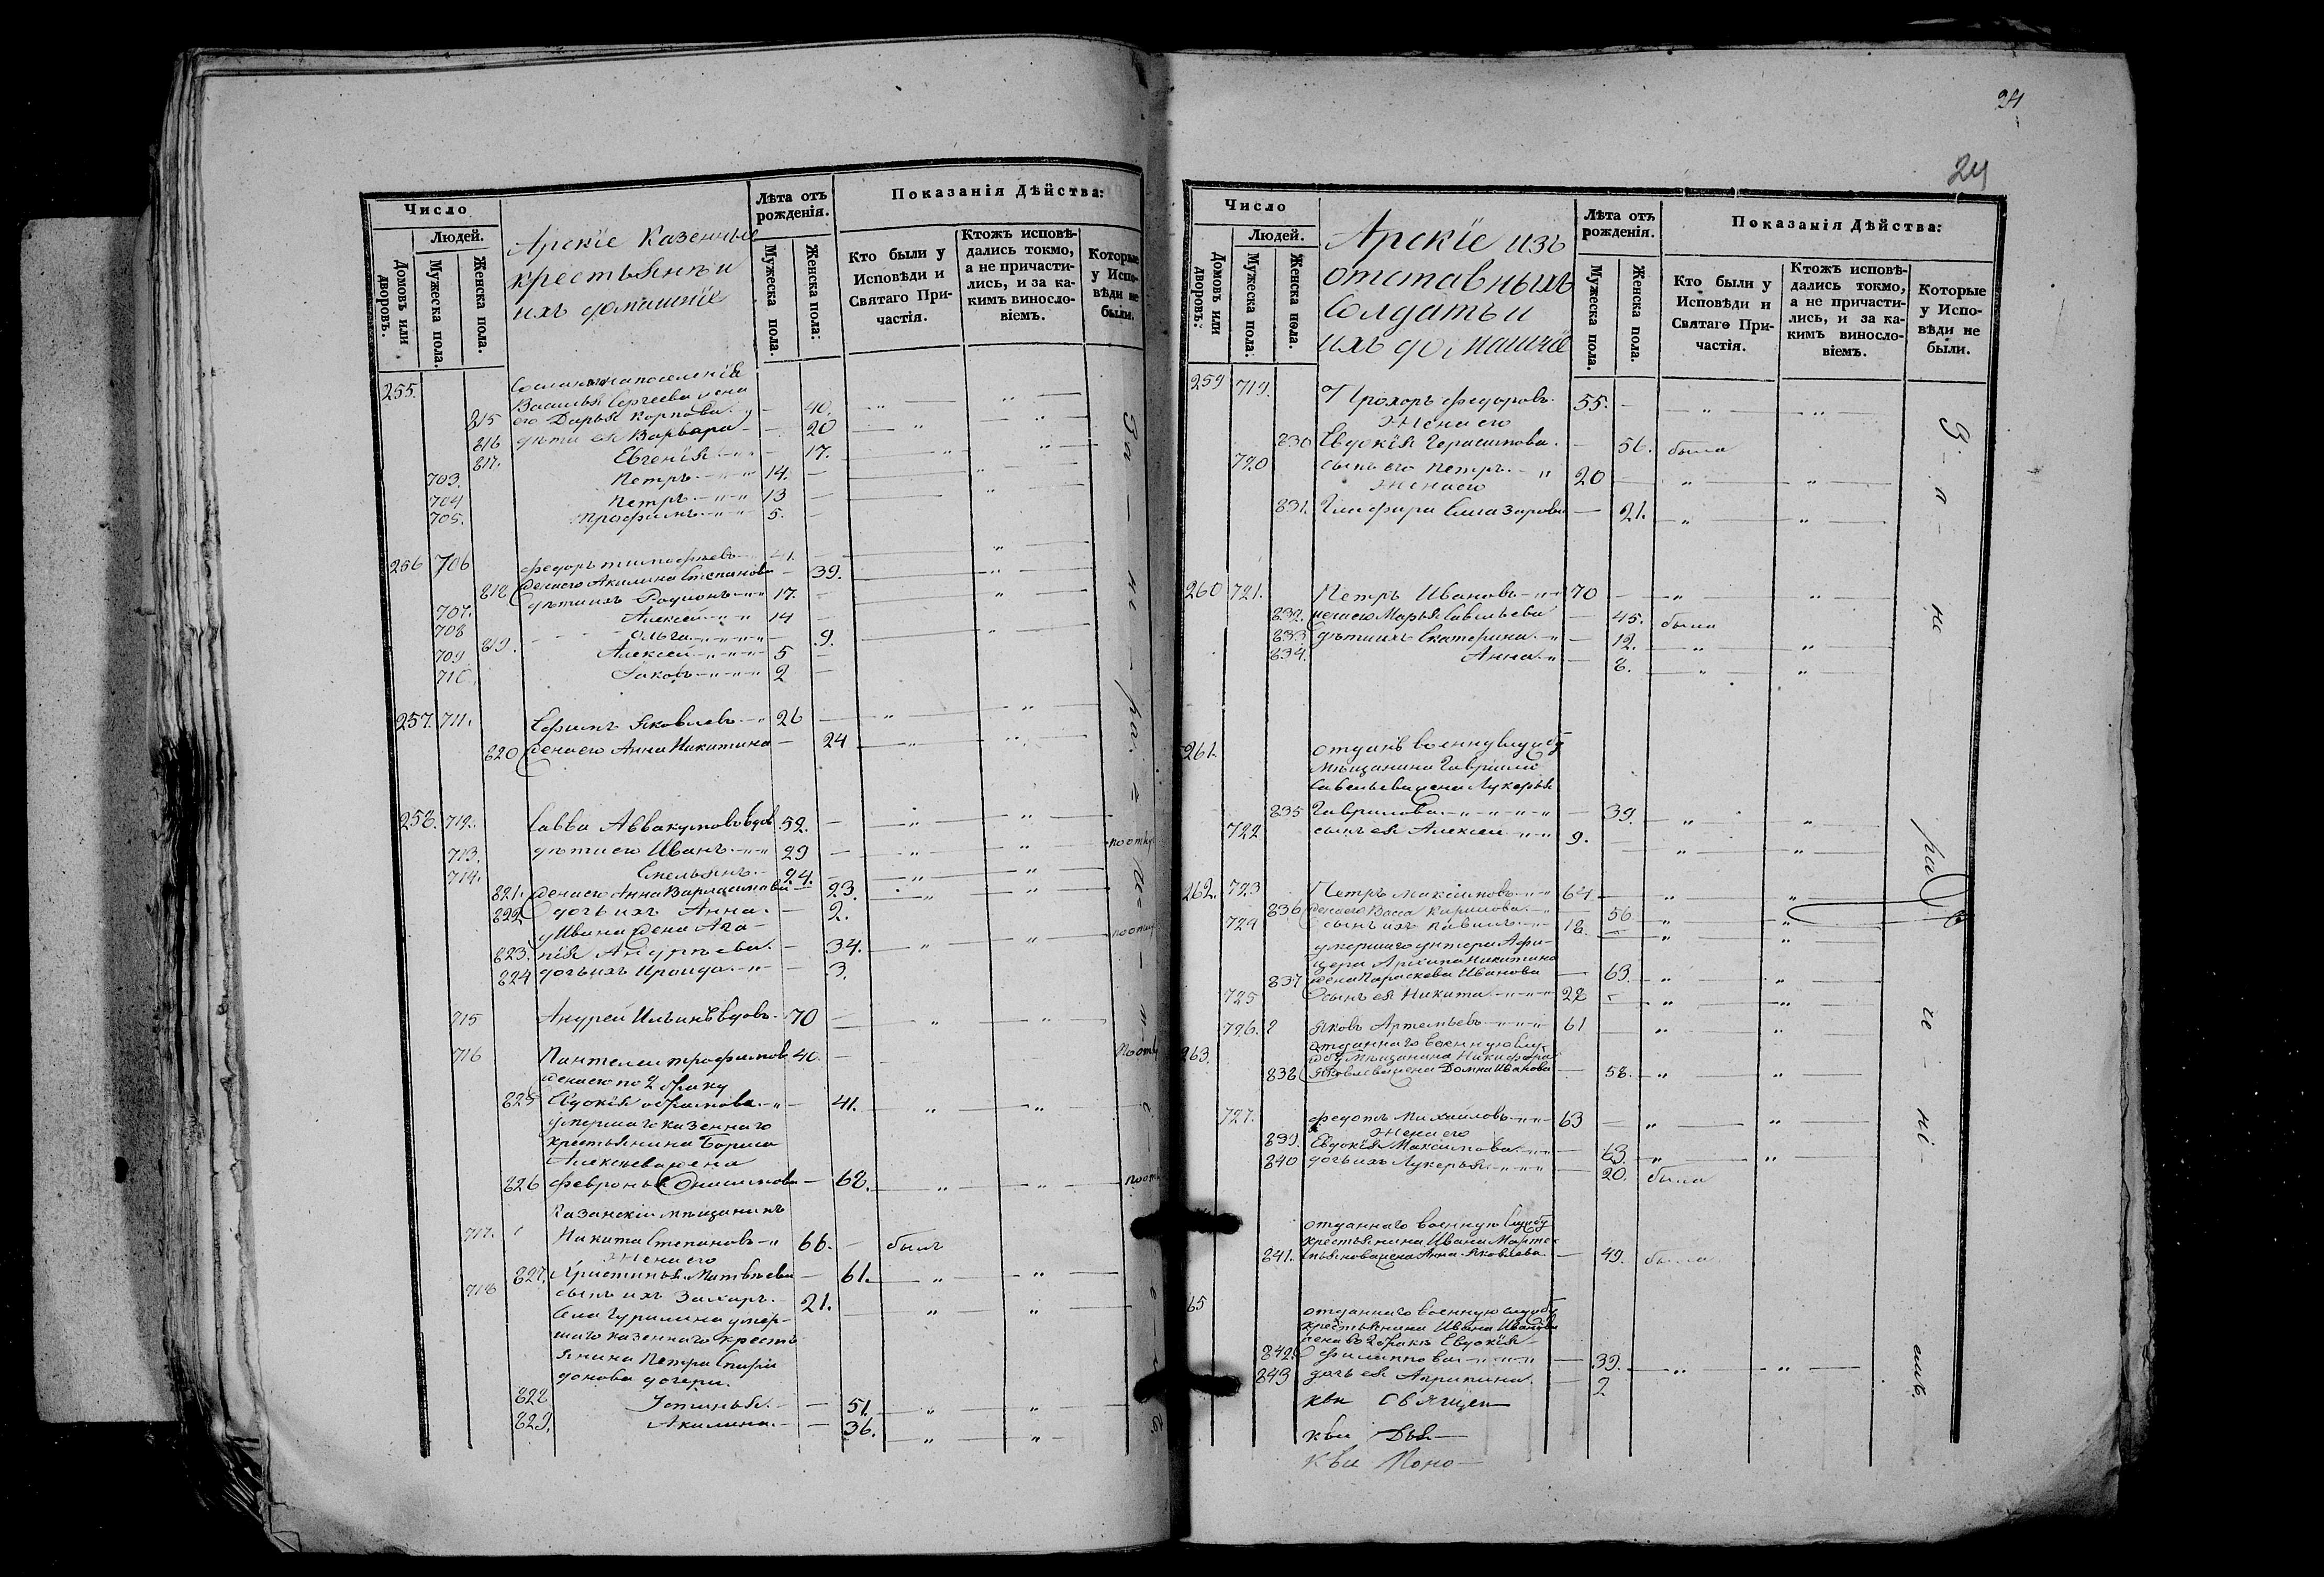 Число
Людей.
Домовъ или дворовъ.
Мужеска пола.
Женска пола.
Арскіе казенные
крестьянъ и
ихъ домашніе
Лѣта отъ рожденія.
Мужеска пола.
Женска пола:
Показанія Дѣйства:
Кто были у Исповѣди и Святаго Причастія.
Ктожъ исповѣдались токмо, а не причастились, и за какимъ винословіемъ.
Которые у Исповѣди не были.
255.
Василья Сергеева жена
815 его Дарья Карпова 40.
816 дѣти ея Варвара 20
817. Евгенія 17.
703. Петръ 14.
704 Петръ 13
705. Трофимъ 5.
256 706 Федоръ Тимофѣевъ 41.
818 жена его Акилина Степанова 39.
707. дѣти ихъ Родионъ 17.
708 Алексей 14
819. Ольга 9.
709 Алексей 5
710. Яковъ 2
257. 711. Ефимъ Яковлевъ 26
820 жена его Анна Никитина 24
258. 712. Савва Аввакумовъ вдов 52.
713. дѣти его Иванъ 29
714. Емельянъ 24.
821. жена его Анна 23.
822 дочь ихъ Анна 2.
у Ивана жена Ага-
823. пія Андреева 34.
824 дочь ихъ Ираида 3.
715 Андрей Ильинъ вдовъ 70
716 Пантелеи Трофимовъ 40.
жена его по 2 браку
825 Евдокія 41.
умершаго казеннаго
крестьянина Бориса
Алексеева жена
826 Февронья Онисимова 68.
Казанскіи мѣщанинъ
717. Никита Степановъ 66. былъ
Жена его
827. Христинья Матвѣева 61.
718 сынъ ихъ Захаръ 21.
умер-
шаго казеннаго кресть
янина Петра Спири
донова дочери.
828 Устинья 51.
829. Акилина 36.
24
24
Число
Людей.
Домовъ или дворовъ:
Мужеска пола:
Женска пола.
Арскіе изъ
отставныхъ
Солдатъ и
ихъ домашніе
Лѣта отъ рожденія.
Мужеска пола.
Женска пола.
Показанія Дѣйства:
Кто были у Исповѣди и Святаго Причастія.
Ктожъ исповѣдались токмо, а не причастились, и за какимъ винословіемъ.
Которые у Исповѣди не были.
259 719. Прохоръ Федоровъ 55.
Жена его
830 Евдокія Герасимова 56. была
720 сынъ его Петръ 20
Жена его
831. Глафира Елиазарова 21.
260 721. Петръ Ивановъ 70
832. жена его Марья Савельева 45. была
833 дѣти ихъ Екатерина 12.
834. Анна 8.
261. отдан въ военну службу
Мѣщанина Гавріила
Савельева жена Лукерья
835 Гаврилова 39.
722 сынъ ея Алексеи 9.
262. 723 Петръ Максимовъ 64
836 жена его Васса Карпова 56
724 сынъ ихъ Павелъ 18.
умершаго унтеръ Афи-
цера Архипа Никитина
837 жена Параскева Иванова 63.
725 сынъ ея Никита 28
726. Яковъ Артемьевъ 61
263. отданнаго военную слу-
жбу Мѣщанина Никифора
838 Яковлева жена Домна Иванова 58.
727. Федотъ Михайловъ 63
Жена его
839. Евдокія Максимова 63.
840 дочь ихъ Лукерья 20. была
отданнаго военную службу
крестьянина Ивана Марте-
841. мьянова жена Анна Яковлева 49. была
65 отданнаго военную службу
крестьянина Ивана Иванова
жена во 2 бракѣ Евдокія
842. Филиппова 39.
843 дочь ея Агрипина 2